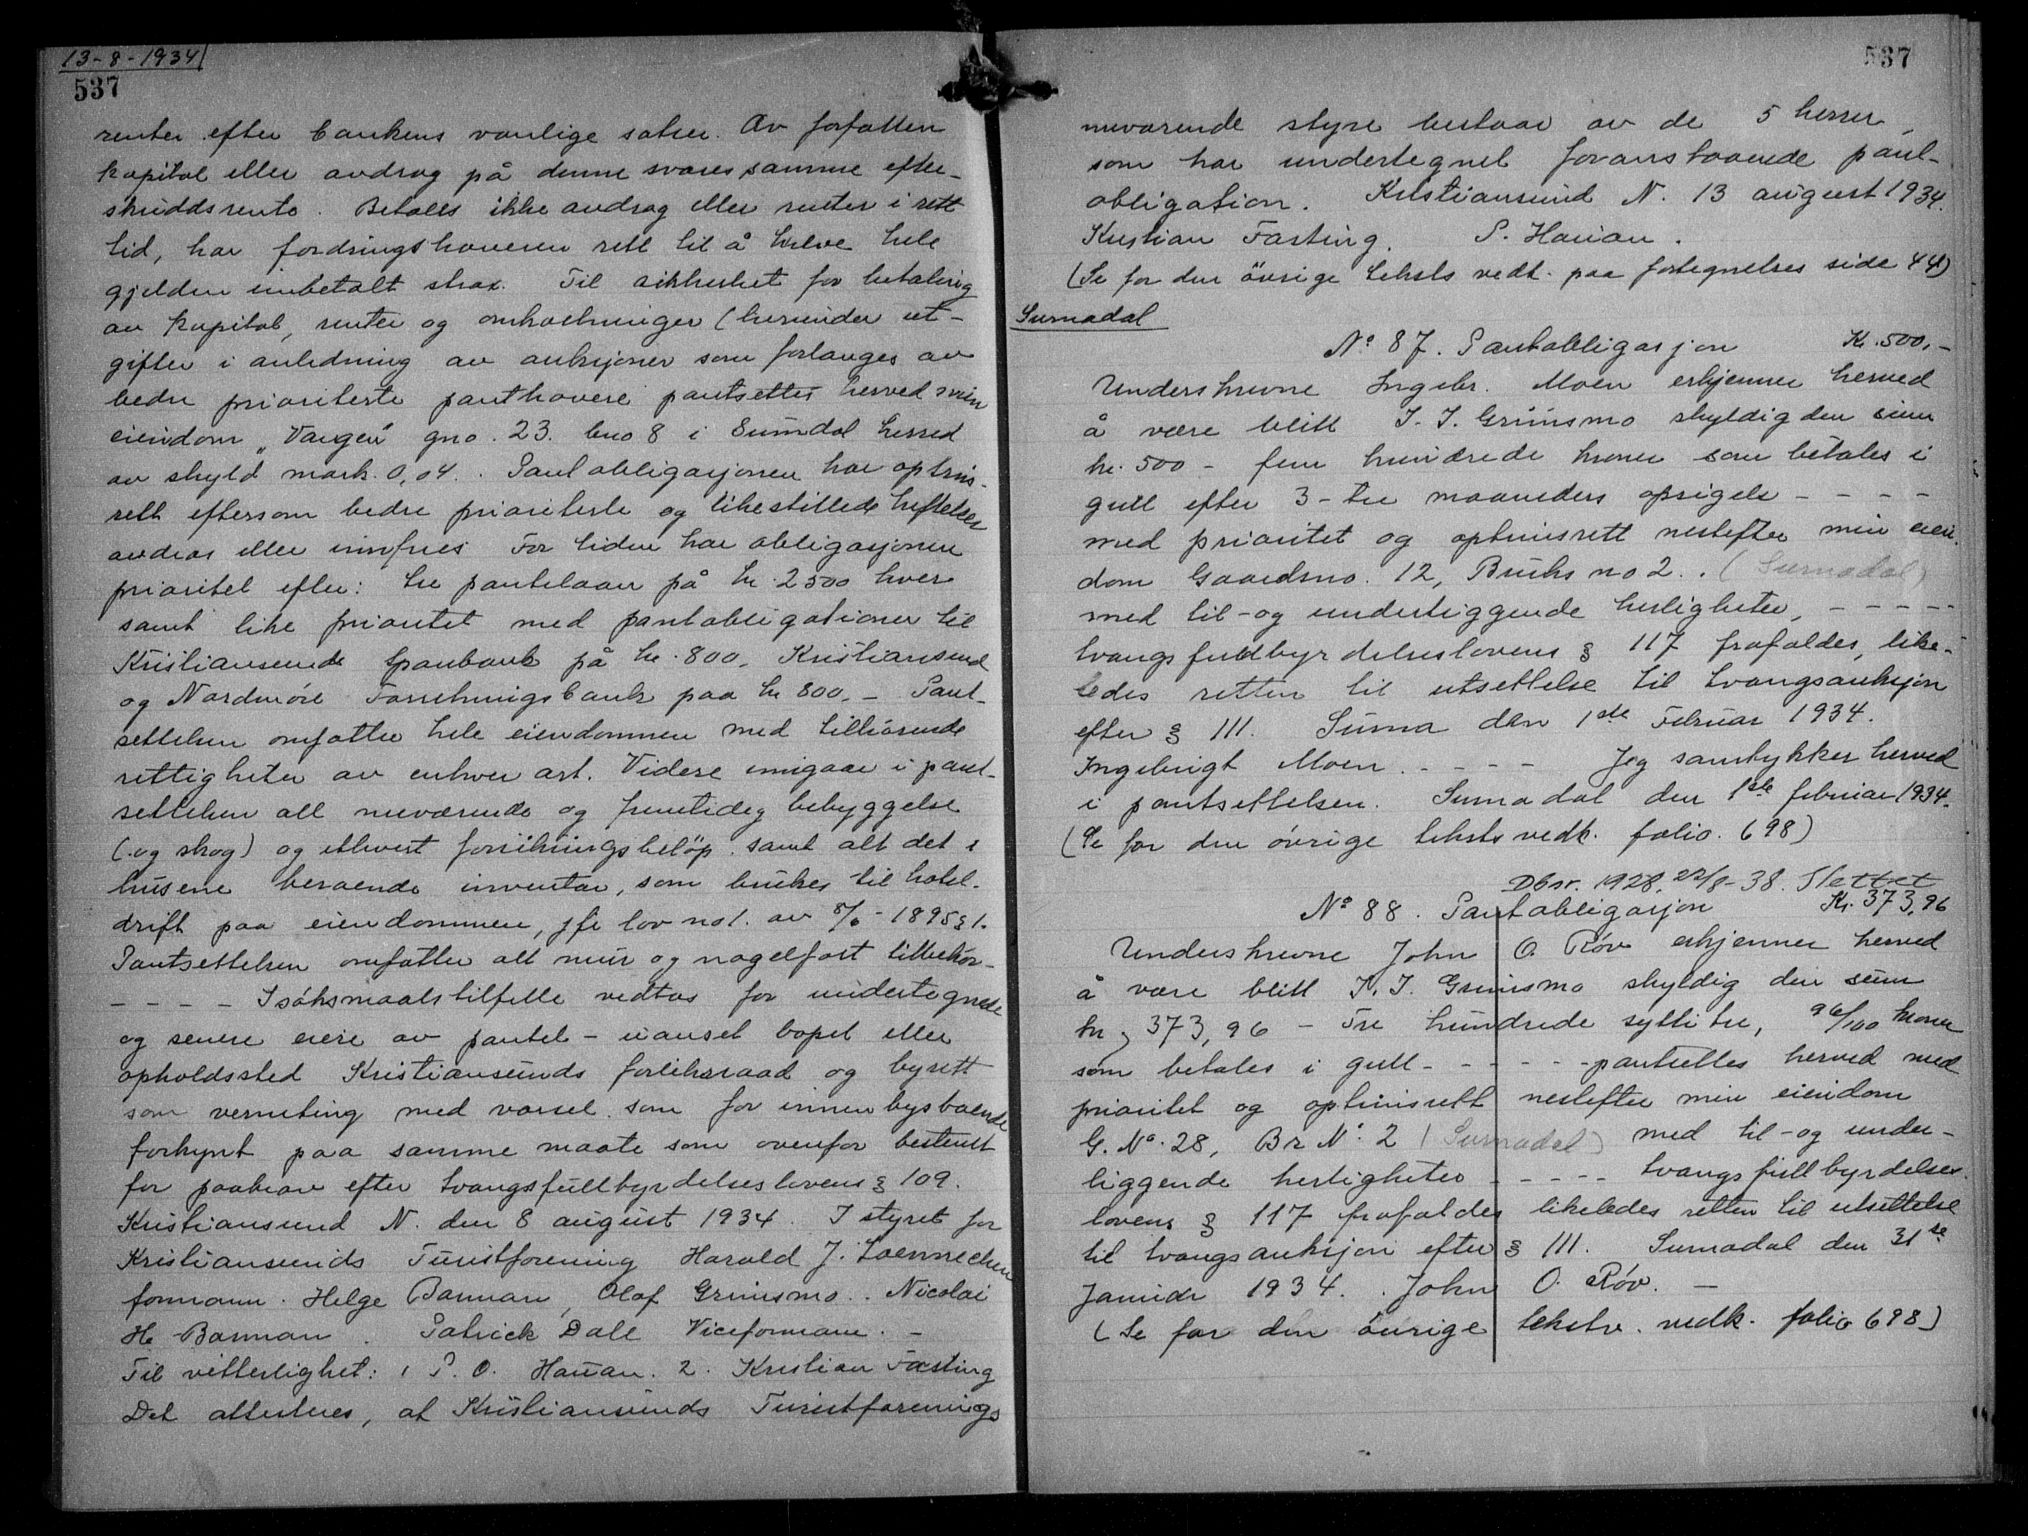 13-8-1934
537
renter efter bankens vanlige satser. Av forfatten
kapital eller avdrag på denne svares samme efter-
skuddsrente. Betales ikke avdrag eller renter i rett
tid, har fordringshaveren rett til å kreve hele
gjelden innbetalt strax. Til sikkerhet for betaling
av kapital, renter og omkostninger (herunder ut-
gifter i anledning av auksjoner som forlanges av
bedre prioriterte panthavere pantsettes herved min
eiendom "Vangen" gno. 23. bno 8 i Sunndal herred
av skyld mark. 0,04. Pantobligasjonen har optrins-
rett eftersom bedre prioriterte og likestillede heftelser
avdras eller innfries For tiden har obligasjonen
prioritet efter: tre pantelaan på kr. 2500 hver
samt like prioritet med pantobligationer til
Kristiansunds Sparebank på kr. 800,- Kristiansund
og Nordmøre Forretningsbank paa kr 800,- Pant-
settelsen omfatter hele eiendommen med tilhørende
rettigheter av enhver art. Videre inngaar i pant-
settelsen all nuværende og fremtidig bebyggelse
(og skog) og ethvert forsikringsbeløp samt alt det i
husene beroende inventar, som brukes til hotel-
drift paa eiendommen, jfr lov no 1. av 8/6-1895 § 1.
Pantsettelsen omfatter alt mur og nagelfast tilbehør-
- - - - I søksmaalstilfelle vedtas for undertegnede
og senere eiere av pantet - uanset bopel eller
opholdssted Kristiansunds forliksraad og byrett
som verneting med varsel som for innenbysboende
forkynt paa samme maate som ovenfor bestemt
for paakrav efter tvangsfullbyrdelseslovens § 109.
Kristiansund N. den 8 august 1934. I styret for
Kristiansunds Turistforening Harald J. Loennechen
formann. Helge Barman, Olaf Grimsmo. Nicolai
H. Barman. Patrick Dall Viceformann. -
Til vitterlighet: 1 P. O. Hauan. 2. Kristian Fasting
Det attesteres, at Kristiansunds Turistforenings
537
nuværende styre bestaar av de 5 herrer,
som har undertegnet foranstaaende pant-
obligation. Kristiansund N. 13 august 1934.
Kristian Fasting. P. Hauan.
(Se for den övrige teksts vedk. paa fortegnelses side 441)
Surnadal
No 87. Pantobligasjon Kr. 500,-
Underskrevne Ingebr. Moen erkjenner herved
å være blitt J. J. Grimsmo skyldig den sum
kr. 500 - fem hundrede kroner som betales i
gull efter 3 - tre maaneders opsigelse - - - -
med prioritet og optrinsrett nestefter min eien-
dom Gaardsno. 12, Bruks no 2. (Surnadal)
med til- og underliggende herligheter, - - - - -
tvangsfuldbyrdelseslovens § 117 frafaldes, like-
ledes retten til utsettelse til tvangsauksjon
efter § 111. Surna den 1ste Februar 1934.
Ingebrigt Moen. - - - - Jeg samtykker herved
i pantsettelsen. Surnadal den 1ste februar 1934.
(Se for den øvrige teksts vedk. folio. 698)
Dbnr. 1928, 22/8-38. Slettet
No 88. Pantobligasjon Kr. 373,96
Underskrevne John O. Røv erkjenner herved
å være blitt J. J. Grimsmo skyldig den sum
kr, 373,96 - Tre hundrede sytti tre, 96/100 kroner
som betales i gull - - - - - pantsettes herved med
prioritet og optrinsrett nestefter min eiendom
G. No. 28, Br No. 2 (Surnadal) med til- og under-
liggende herligheter - - - - - tvangsfullbyrdelses-
lovens § 117 frafaldes likeledes retten til utsettelse
til tvangsauksjon efter § 111. Surnadal den 31te
Januar 1934. John O. Røv. -
(Se for den övrige tekstv. vedk. folio 698)